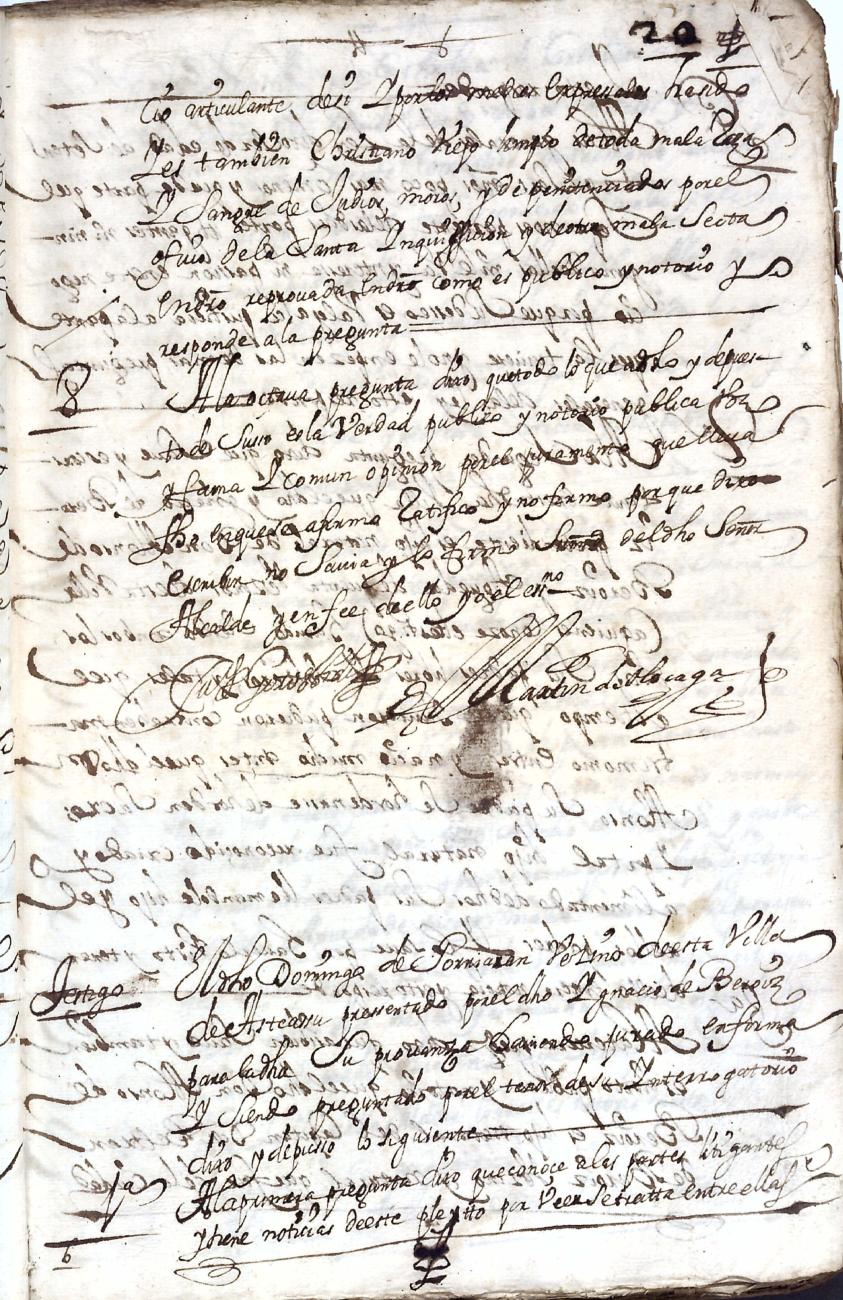 20
cio articulante desi Y por sus Padres Expresados ha sido
Y es tambien Christiano Viejo limpio de toda mala Raza
Y Sangre de Judios, moros, y de penitenciados por el
ofiçio de la Santa Ynquissicion y de otra mala Secta
reprovada Como es publico y notorio y
responde a la pregunta
8 A la octava pregunta dixo, que todo lo que a dho y depues
to de Susso es la Verdad publico y notorio publica Voz
y fama Y comun opinion por el juramento que lleva
fho en que se afirmo Ratifico y no firmo por que dixo
Escribir no Savia y lo firmo Su md del dho Señor
Alcalde y en fee de ello yo el essno
Martin de Alocaga
Testigo El dho Domingo de Sorriaran Vezino de esta Villa
de Asteassu pressentado por el dho Ygnacio de Beroiz
para la dha Su provanza haviendo jurado en forma
Y Siendo preguntado por el tenor de su Ynterrogatorio
dixo y depusso lo siguiente
1a A la primera pregunta dixo que conoce a las partes litigantes
y tiene noticias de este pleytto por Veer Se tratta entre ellas